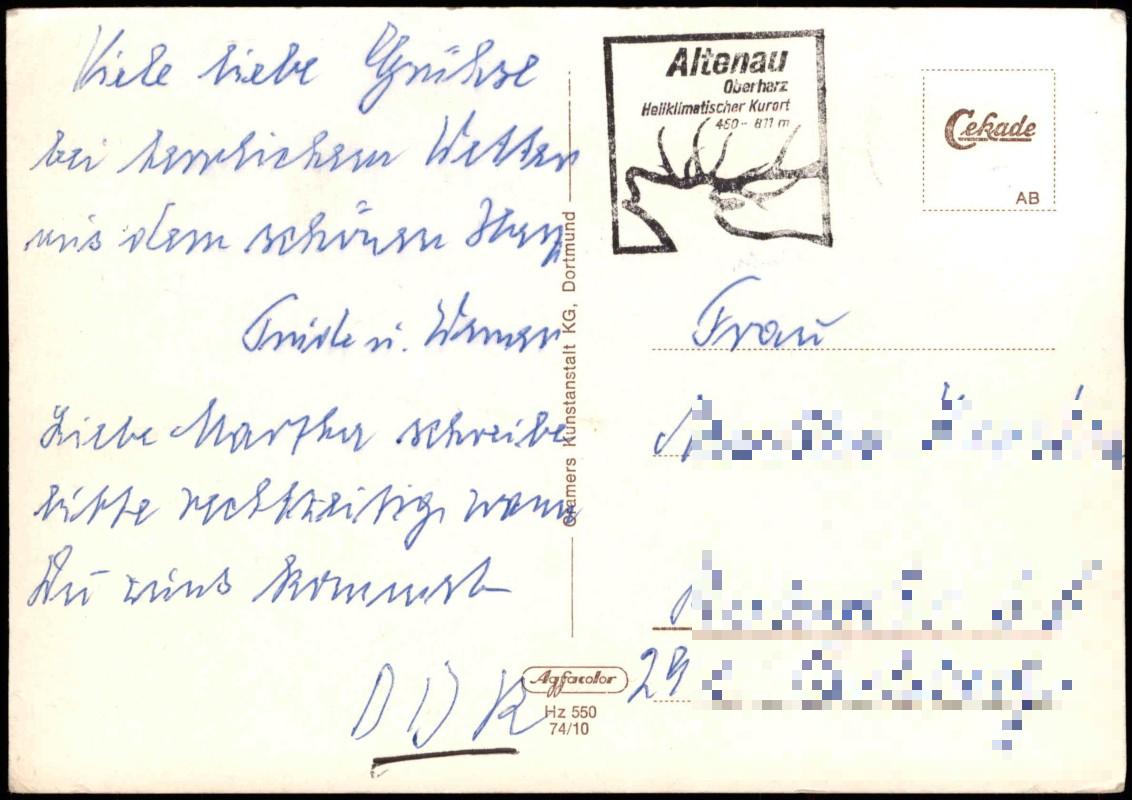 Viele liebe Grühse
bei herrlichem Wetter
aus dem schönen Harz
Trude u. Werner
Liebe Martha schreibe
bitte rechtzeitig wann
Du kommst
DDR
Cramers Kunstanstalt KG, Dortmund
Agfacolor
Hz 550
74/10
Altenau
Oberharz
Heilklimatischer Kurort
450- 811 m
Cekade
AB
Frau
29